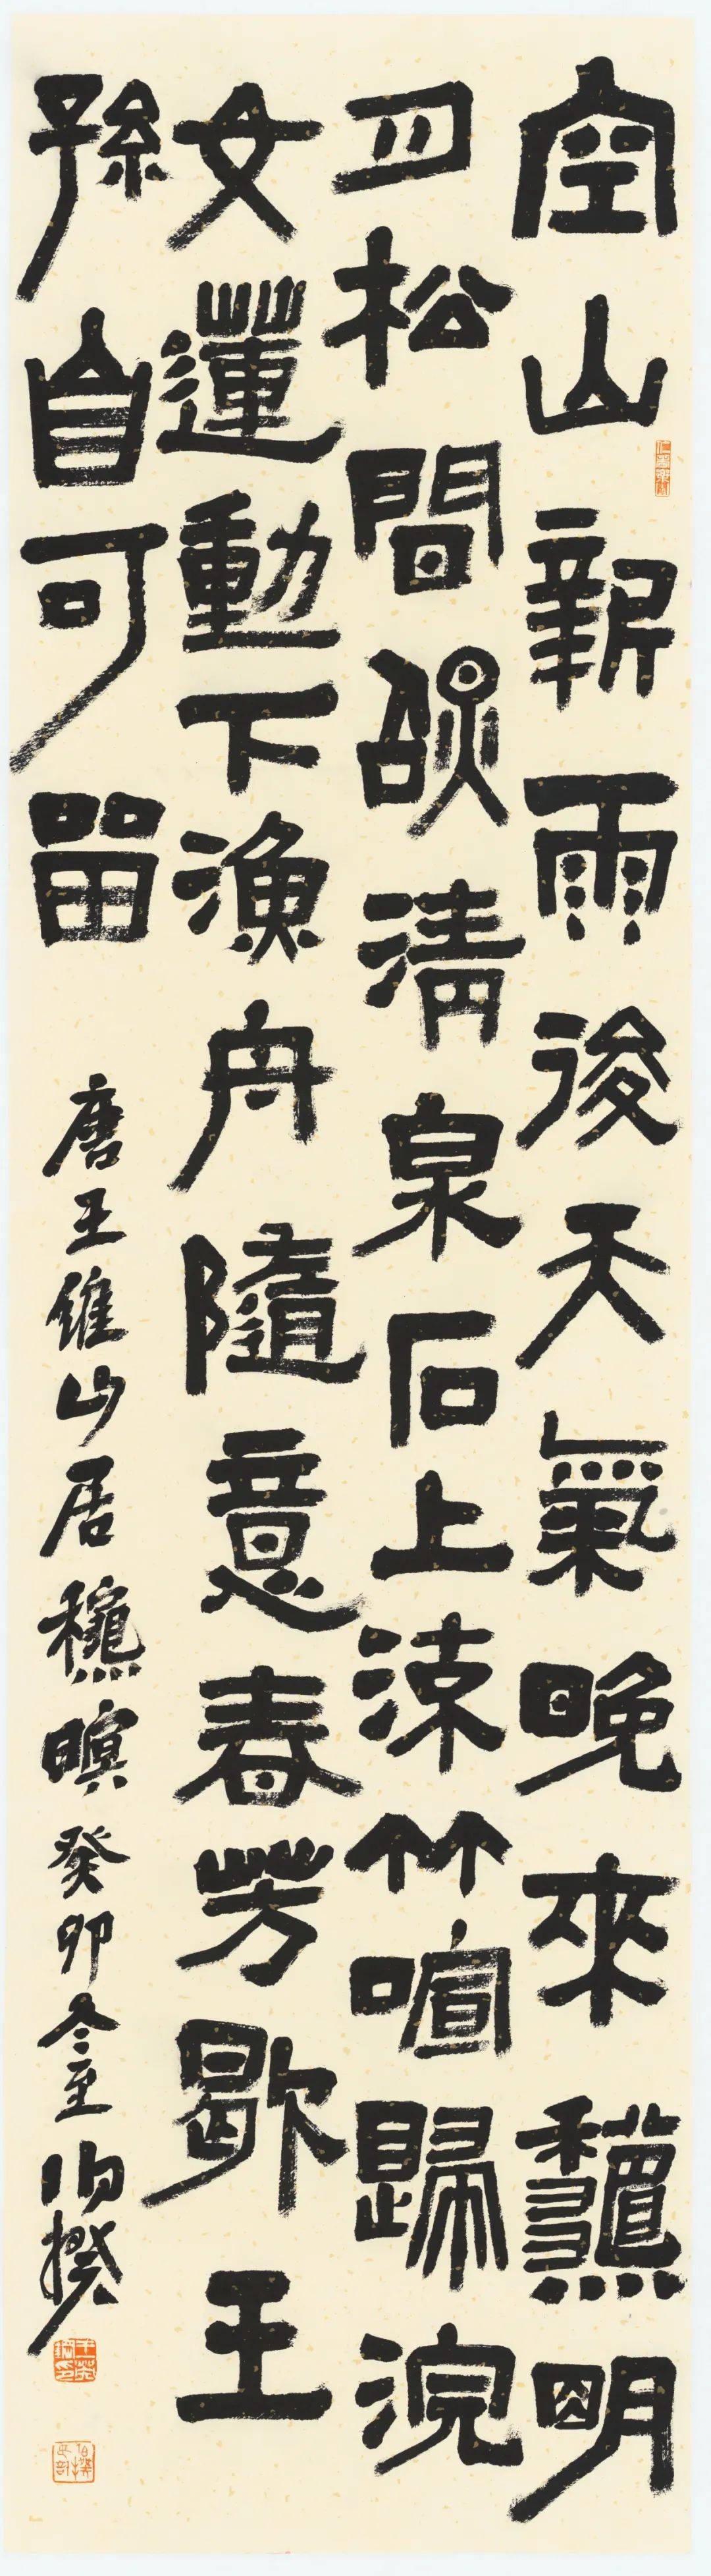 空山新雨後天氣晚來龝明
月松間照清泉石上流竹喧歸浣
女蓮動下漁舟隨意春芳歇王
孫自可留
唐王維山居龝暝癸卯冬至伯揆